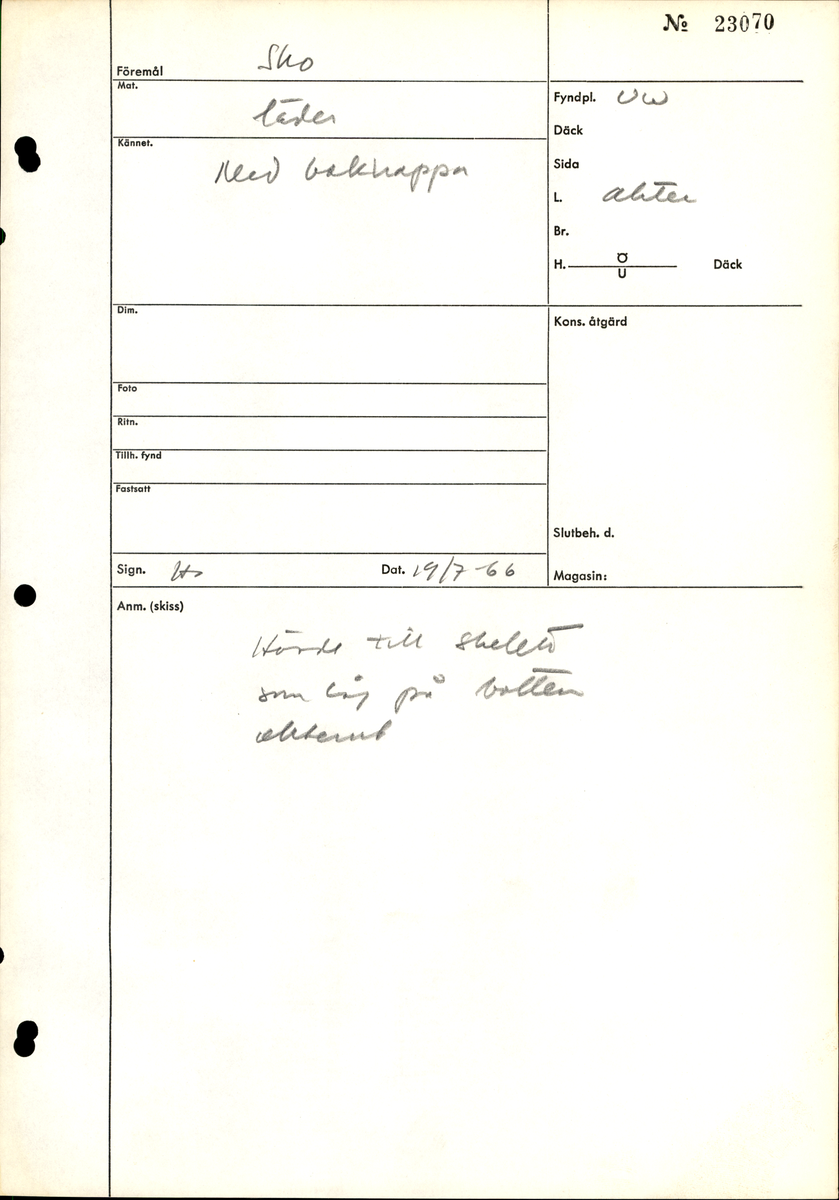 № 23070
Föremål Sko
Mat. läder
Kännet. Med bakkappa
Fyndpl. UW
Däck
Sida
L. akter
Br.
H. Ö/U Däck
Dim.
Kons. åtgärd
Foto
Ritn.
Tillh. fynd
Fastsatt
Slutbeh. d.
Sign. Dat. 19/7-66
Magasin:
Anm. (skiss)
Hörde till skelett
som låg på botten
akterut